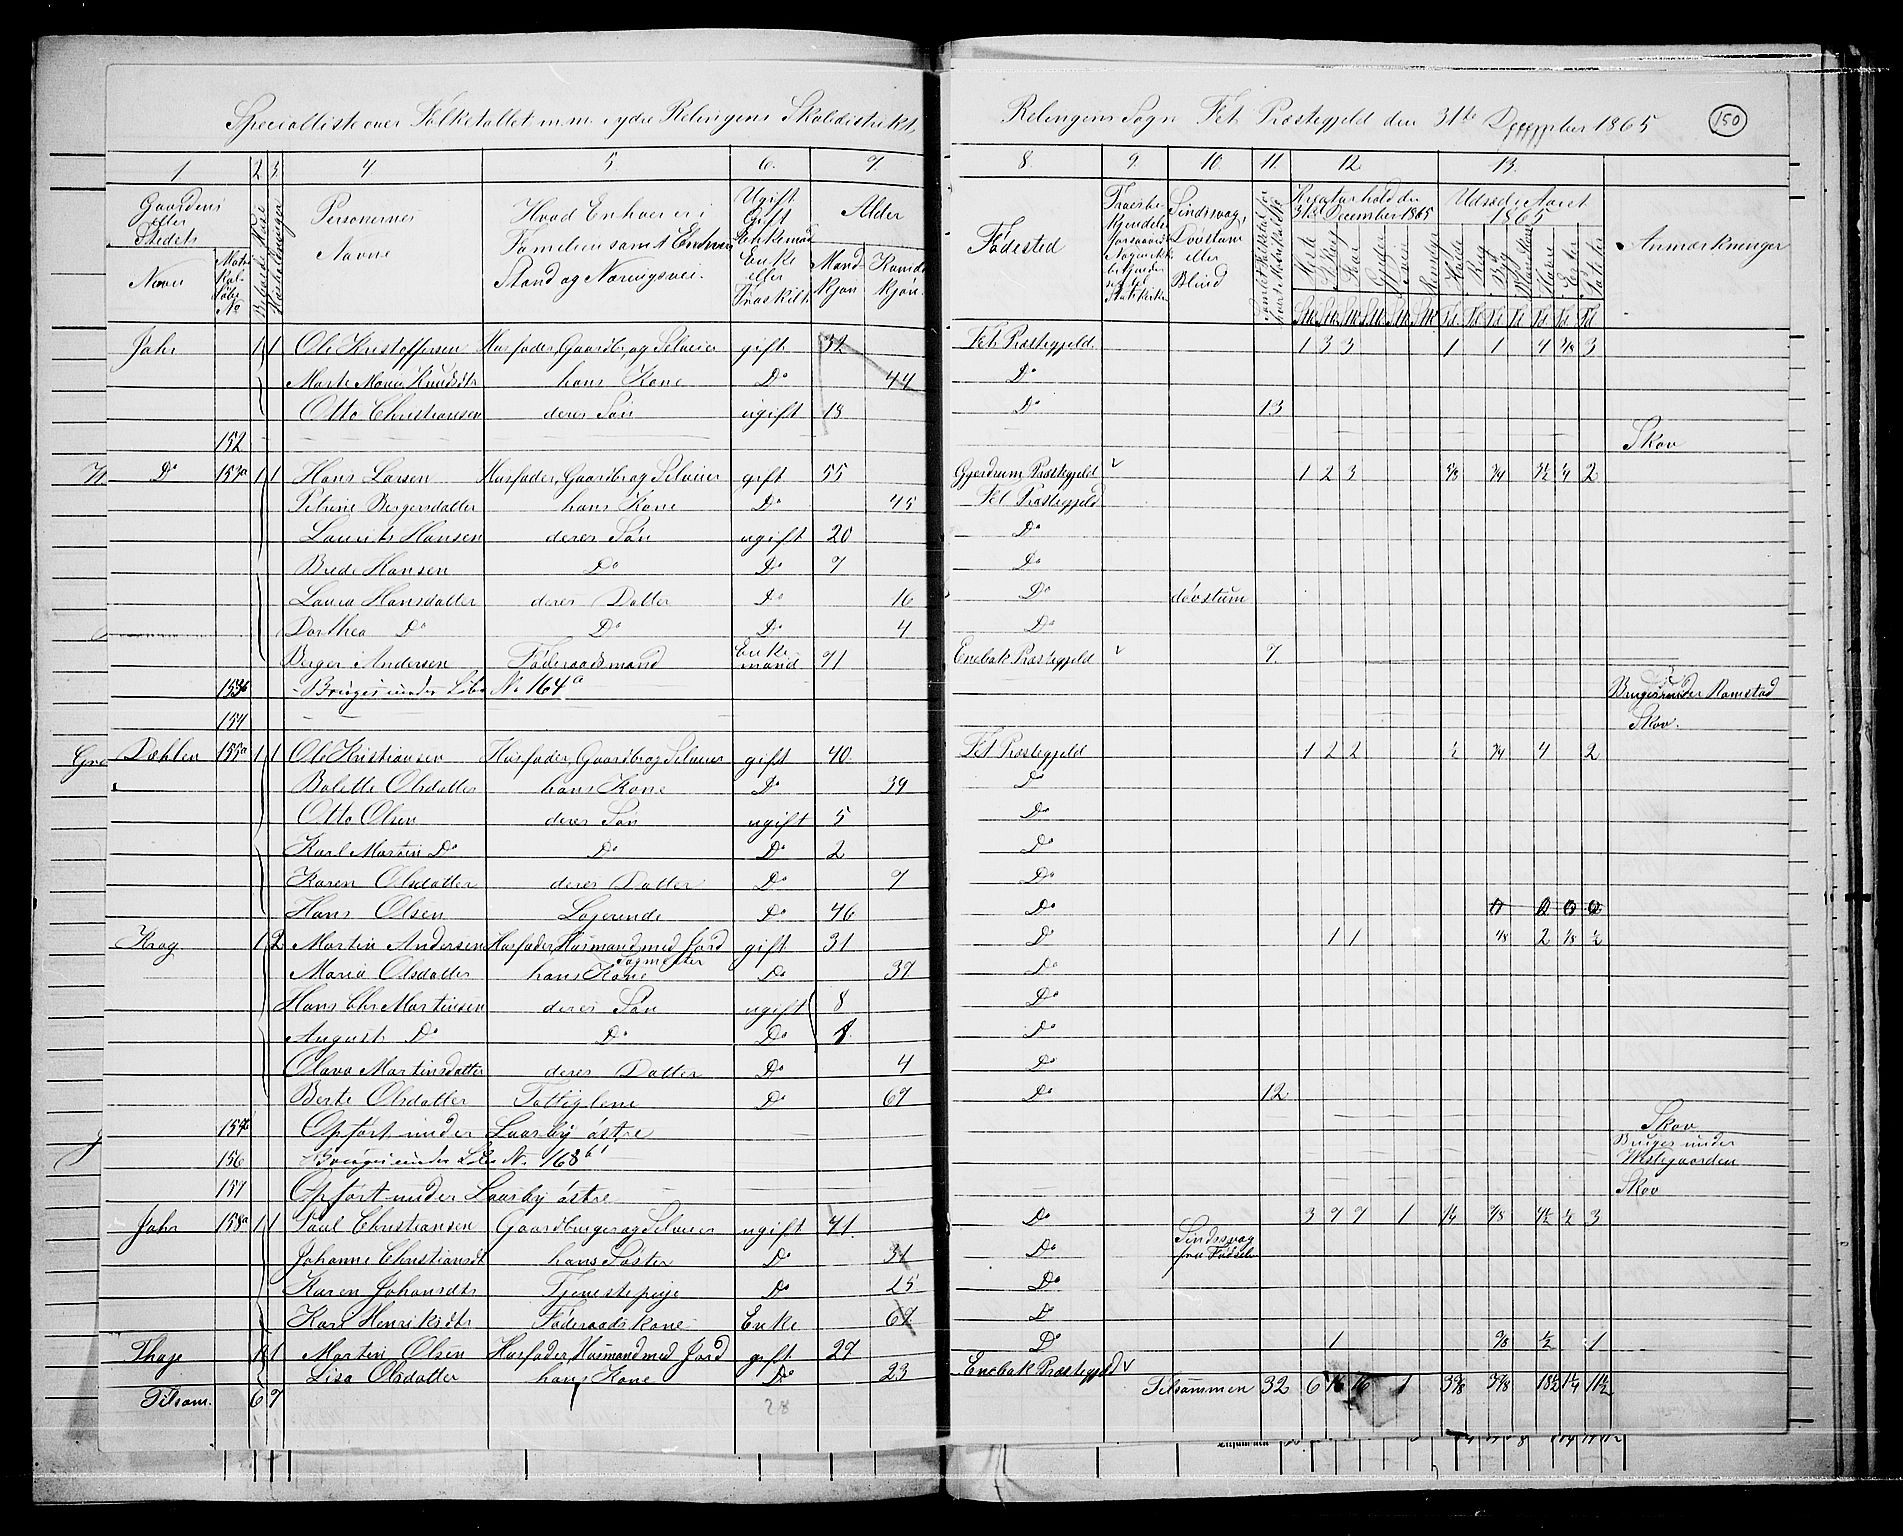 Specialliste over Folketallet m.m. i ydre Relingens Skoledistrikt, Relingens Sogn Fet Præstegjeld den 31te December 1865 150
1 2 3 4 5 6. 7. 8. 9. 10. 11. 12. 13.
Gaardens eller Stedets Navn Matrikul Løbe No Beboede Huse Husholdninger Personernes Navne Hvad Enhver er i Familien samt Enhvers Stand og Næringsvei. Ugift Gift Enkemand Enke eller Fraskilt Alder Mandkjøn Kvindekjøn Fødested Sindssvag, Døvstum eller Blind Kreaturhold den 31te December 1865 Udsæd i Aaret 1865 Anmærkninger
Heste Stkvæg Faar Gjeder Svin Rensdyr Hvede Rug Byg Blandkorn Havre Erter Poteter
Jahr 1 1 Ole Kristoffersen Husfader, Gaardbr. og Selveier gift 32 Fet Præstegjeld 1 3 3 1 1 4 3
Marte Maria Knudsdtr hans Kone Do 44 Do
Otto Christiansen deres Søn ugift 18 Do 13
152 Skov
Do 153a 1 1 Hans Larsen Husfader, Gaardbr og Selveier gift 55 Gjerdrum Præstegjeld 1 2 3 3/4 2
Petrine Bergersdatter hans Kone Do 45 Fet Præstegjeld
Laurits Hansen deres Søn ugift 20 Do
Brede Hansen Do Do 7 Do
Laura Hansdatter deres Datter Do 16 Do døvstum
Dorthea Do Do Do 4 Do
Berger Andersen Føderaadsmand Enkemand 71 Enebak Præstegjeld 7.
153b Bruges under Løbe No 164a Bruges under Ramstad
154 Skov.
Dæhlen 155a 1 1 Ole Kristiansen Husfader, Gaardbr og Selveier gift 40. Fet Præstegjeld 1 2 2 1/2 3/4 4 2
Bolette Olsdatter hans Kone Do 39 Do
Otto Olsen deres Søn ugift 5 Do
Karl Martin Do Do Do 2 Do
Karen Olsdatter deres Datter Do 7 Do
Hans Olsen Logerende Do 46 Do
Krog 1 2 Martin Andersen Husfader, Husmand med Jord gift 31 Do 1 1 4/8 2 1/8 1/2
Sagmester
Maria Olsdatter hans Kone Do 37 Do
Hans Chr Martinsen deres Søn ugift 8 Do
August Do Do Do Do
Olava Martinsdatter deres Datter Do 4 Do
Berte Olsdatter Fattiglem Do 67 Do 12
Opført under Laasby østre Skov
156 Bruges under Løbe No 168b1 Bruges under Westegaarden
157 Opført under Laasby østre Skov
Jahr 158a 1 1 Paul Christiansen Gaardbruger og Selveier ugift 41. Do 3 7 7 1 1/4 7/8 1/2 3
Johanne Christiansdt hans Søster Do 31 Do Sindssvag fra Fødselen
Karen Johansdtr Tjenestepige Do 25 Do
Kari Henriksdtr Føderaadskone Enke 67 Do
Thage 1 1 Martin Olsen Husfader, Husmand med Jord gift 27 Do 1 1/2 1
Lisa Olsdatter hans Kone Do 23 Enebak Præstegjeld
Tilsam. 6 7 28 Tilsammen 32 6 16 16 1 3 5/8 18 1/2 1 1/4 11 1/2